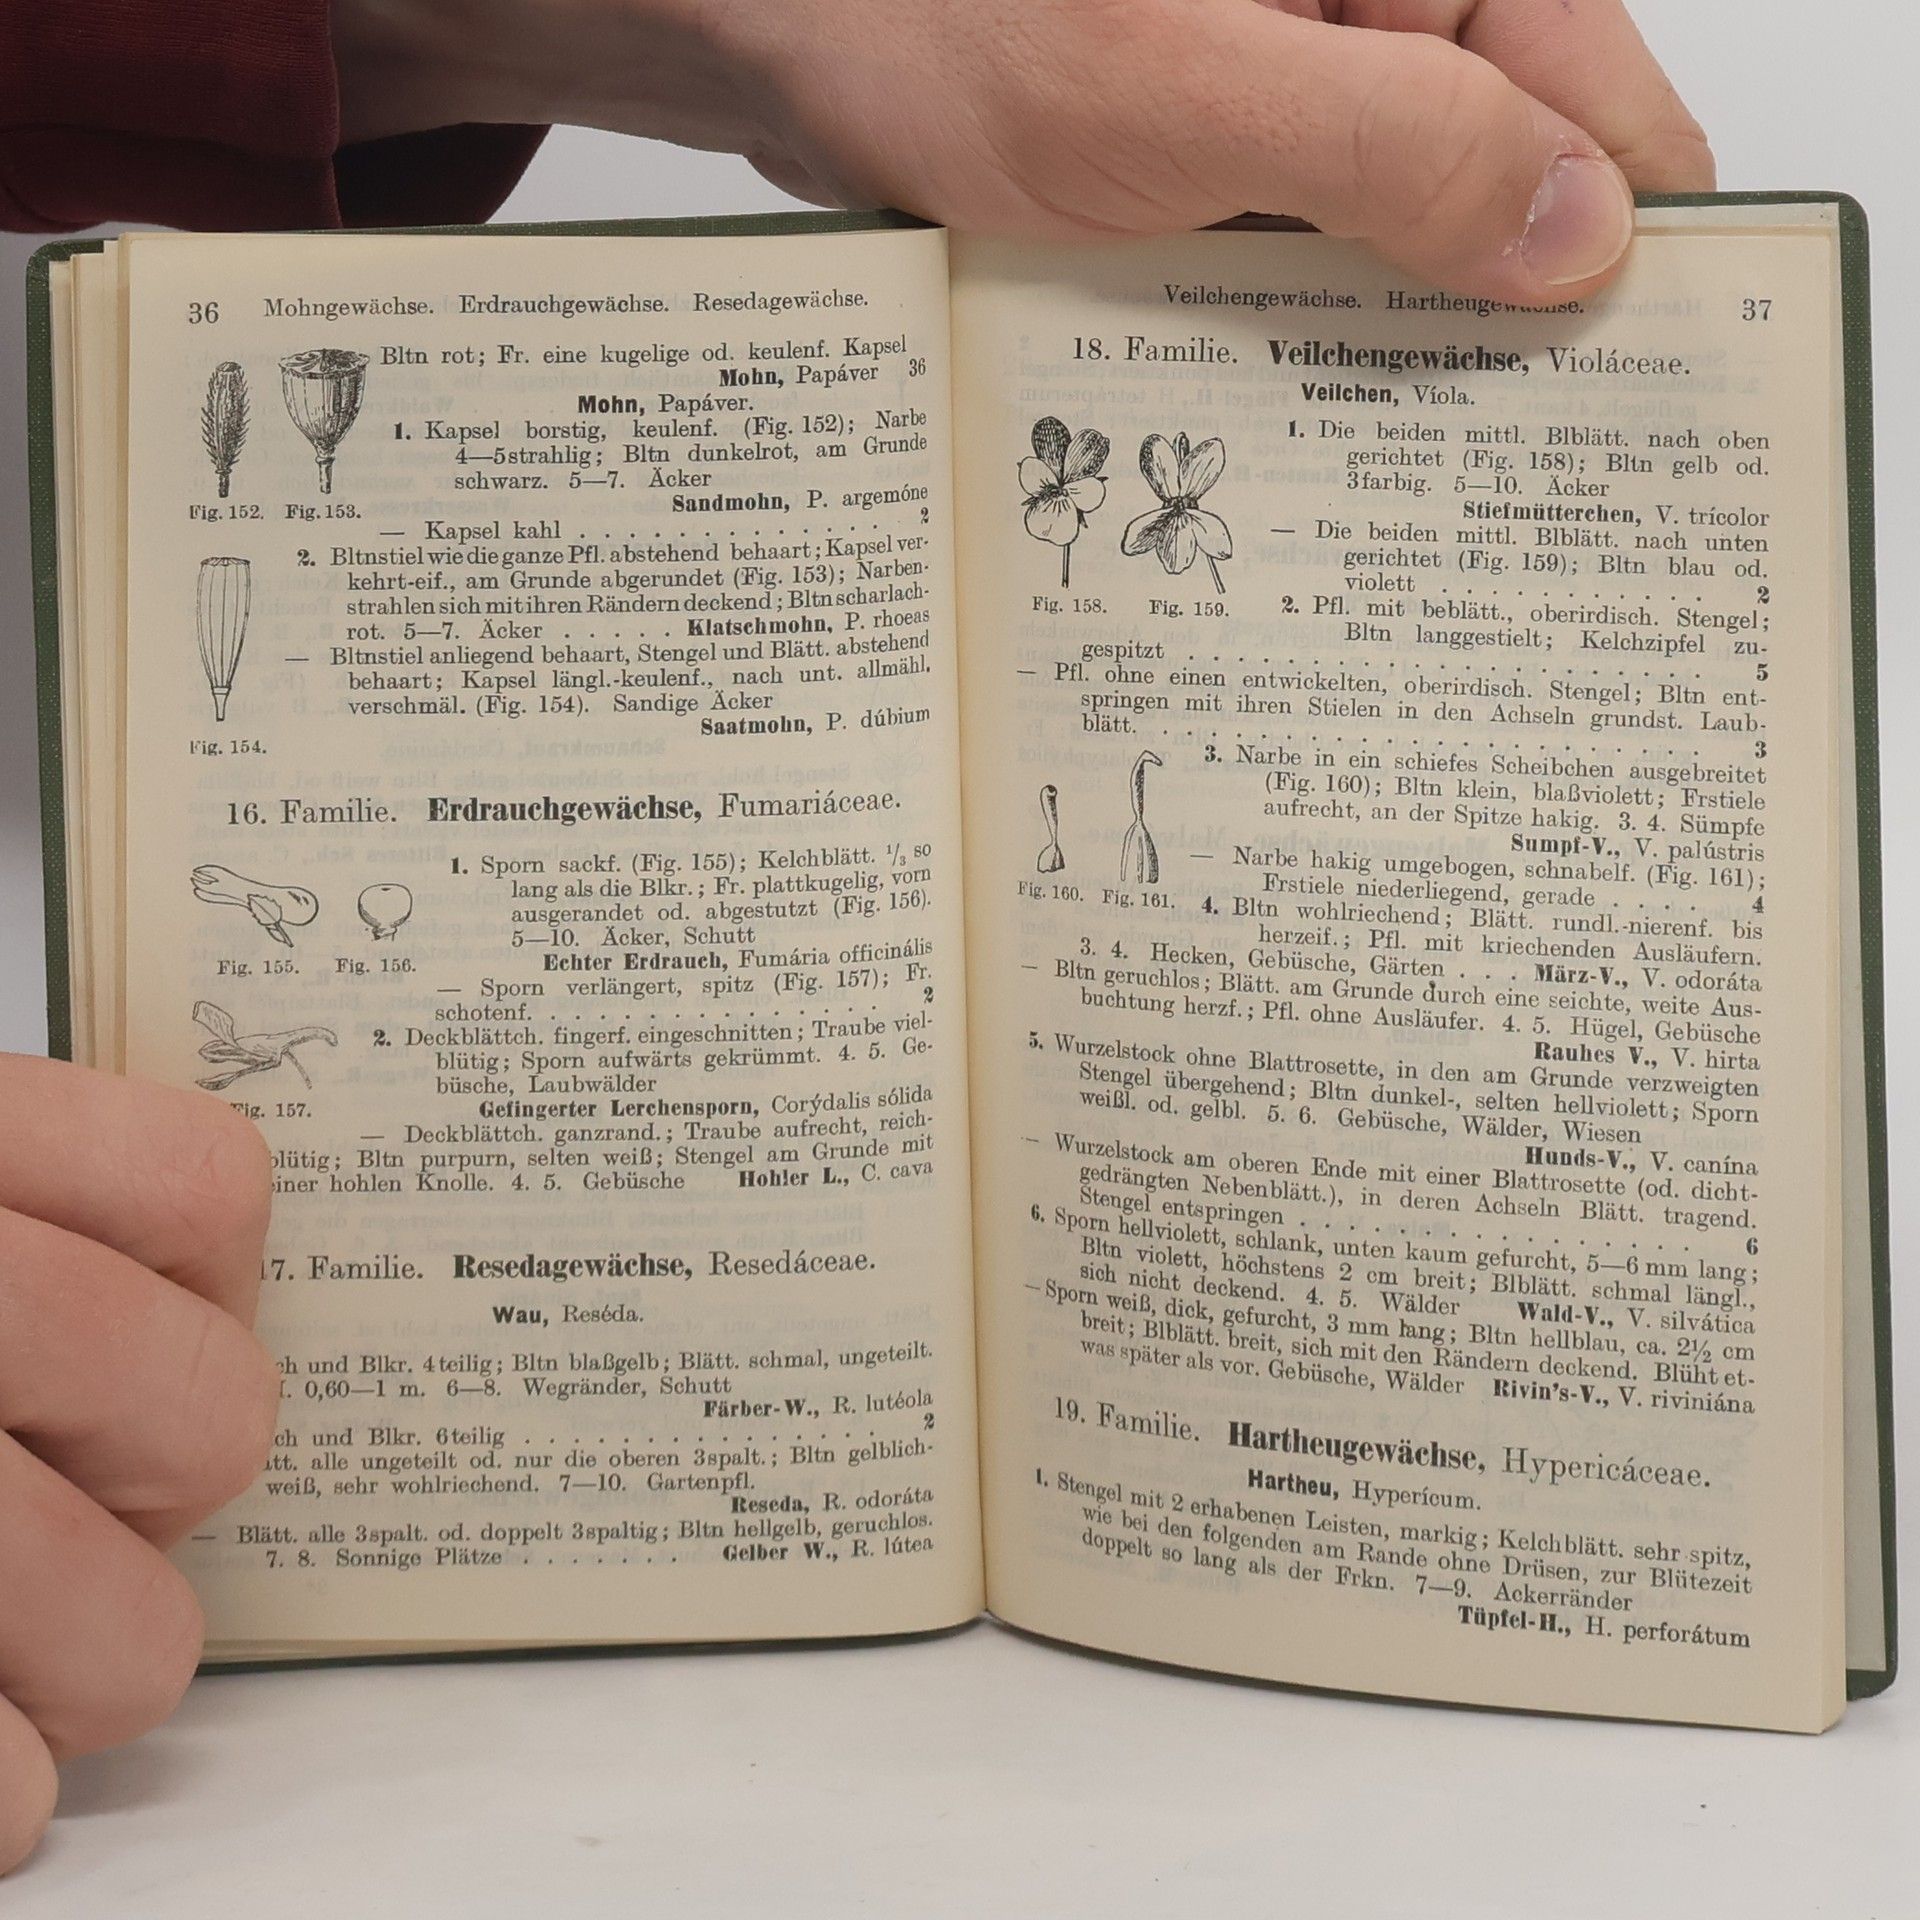 36 Mohngewächse. Erdrauchgewächse. Resedagewächse.
Bltn rot; Fr. eine kugelige od. keulenf. Kapsel
Mohn, Papáver 36
Mohn, Papáver.
1. Kapsel borstig, keulenf. (Fig. 152); Narbe
4—5strahlig; Bltn dunkelrot, am Grunde
schwarz. 5—7. Äcker
Sandmohn, P. argemóne
Fig. 152. Fig. 153.
— Kapsel kahl . . . . . . . . . . . . . 2
2. Bltnstiel wie die ganze Pfl. abstehend behaart; Kapsel ver-
kehrt-eif., am Grunde abgerundet (Fig. 153); Narben-
strahlen sich mit ihren Rändern deckend; Bltn scharlach-
rot. 5—7. Äcker . . . . . Klatschmohn, P. rhoeas
— Bltnstiel anliegend behaart, Stengel und Blätt. abstehend
behaart; Kapsel längl.-keulenf., nach unt. allmähl.
verschmäl. (Fig. 154). Sandige Äcker
Saatmohn, P. dúbium
Fig. 154.
16. Familie. Erdrauchgewächse, Fumariáceae.
1. Sporn sackf. (Fig. 155); Kelchblätt. 1/3 so
lang als die Blkr.; Fr. plattkugelig, vorn
ausgerandet od. abgestutzt (Fig. 156).
5—10. Äcker, Schutt
Echter Erdrauch, Fumária officinális
Fig. 155. Fig. 156.
— Sporn verlängert, spitz (Fig. 157); Fr.
schotenf. . . . . . . . . . . . . . 2
2. Deckblättch. fingerf. eingeschnitten; Traube viel-
blütig; Sporn aufwärts gekrümmt. 4. 5. Ge-
büsche, Laubwälder
Gefingerter Lerchensporn, Corýdalis sólida
Fig. 157.
— Deckblättch. ganzrand.; Traube aufrecht, reich-
blütig; Bltn purpurn, selten weiß; Stengel am Grunde mit
einer hohlen Knolle. 4. 5. Gebüsche Hohler L., C. cava
17. Familie. Resedagewächse, Resedáceae.
Wau, Reséda.
ch und Blkr. 4teilig; Bltn blaßgelb; Blätt. schmal, ungeteilt.
0,60—1 m. 6—8. Wegränder, Schutt
Färber-W., R. lutéola
ch und Blkr. 6teilig . . . . . . . . . . . . . 2
ätt. alle ungeteilt od. nur die oberen 3spalt.; Bltn gelblich-
weiß, sehr wohlriechend. 7—10. Gartenpfl.
Reseda, R. odoráta
— Blätt. alle 3spalt. od. doppelt 3spaltig; Bltn hellgelb, geruchlos.
7. 8. Sonnige Plätze . . . . . . . Gelber W., R. lútea
Veilchengewächse. Hartheugewächse. 37
18. Familie. Veilchengewächse, Violáceae.
Veilchen, Víola.
1. Die beiden mittl. Blblätt. nach oben
gerichtet (Fig. 158); Bltn gelb od.
3farbig. 5—10. Äcker
Stiefmütterchen, V. trícolor
— Die beiden mittl. Blblätt. nach unten
gerichtet (Fig. 159); Bltn blau od.
violett . . . . . . . . . . . 2
Fig. 158. Fig. 159.
2. Pfl. mit beblätt., oberirdisch. Stengel;
Bltn langgestielt; Kelchzipfel zu-
gespitzt . . . . . . . . . . . . . . . . . . . 5
— Pfl. ohne einen entwickelten, oberirdisch. Stengel; Bltn ent-
springen mit ihren Stielen in den Achseln grundst. Laub-
blätt. . . . . . . . . . . . . . . . . . . . . 3
3. Narbe in ein schiefes Scheibchen ausgebreitet
(Fig. 160); Bltn klein, blaßviolett; Frstiele
aufrecht, an der Spitze hakig. 3. 4. Sümpfe
Sumpf-V., V. palústris
— Narbe hakig umgebogen, schnabelf. (Fig. 161);
Frstiele niederliegend, gerade . . . . 4
Fig. 160. Fig. 161.
4. Bltn wohlriechend; Blätt. rundl.-nierenf. bis
herzeif.; Pfl. mit kriechenden Ausläufern.
3. 4. Hecken, Gebüsche, Gärten . . . März-V., V. odoráta
— Bltn geruchlos; Blätt. am Grunde durch eine seichte, weite Aus-
buchtung herzf.; Pfl. ohne Ausläufer. 4. 5. Hügel, Gebüsche
Rauhes V., V. hirta
5. Wurzelstock ohne Blattrosette, in den am Grunde verzweigten
Stengel übergehend; Bltn dunkel-, selten hellviolett; Sporn
weißl. od. gelbl. 5. 6. Gebüsche, Wälder, Wiesen
Hunds-V., V. canína
— Wurzelstock am oberen Ende mit einer Blattrosette (od. dicht-
gedrängten Nebenblätt.), in deren Achseln Blätt. tragend.
Stengel entspringen . . . . . . . . . . . . . . 6
6. Sporn hellviolett, schlank, unten kaum gefurcht, 5—6 mm lang;
Bltn violett, höchstens 2 cm breit; Blblätt. schmal längl.,
sich nicht deckend. 4. 5. Wälder Wald-V., V. silvática
— Sporn weiß, dick, gefurcht, 3 mm lang; Bltn hellblau, ca. 2½ cm
breit; Blblätt. breit, sich mit den Rändern deckend. Blüht et-
was später als vor. Gebüsche, Wälder Rivin's-V., V. riviniána
19. Familie. Hartheugewächse, Hypericáceae.
Hartheu, Hyperícum.
1. Stengel mit 2 erhabenen Leisten, markig; Kelchblätt. sehr spitz,
wie bei den folgenden am Rande ohne Drüsen, zur Blütezeit
doppelt so lang als der Frkn. 7—9. Ackerränder
Tüpfel-H., H. perforátum